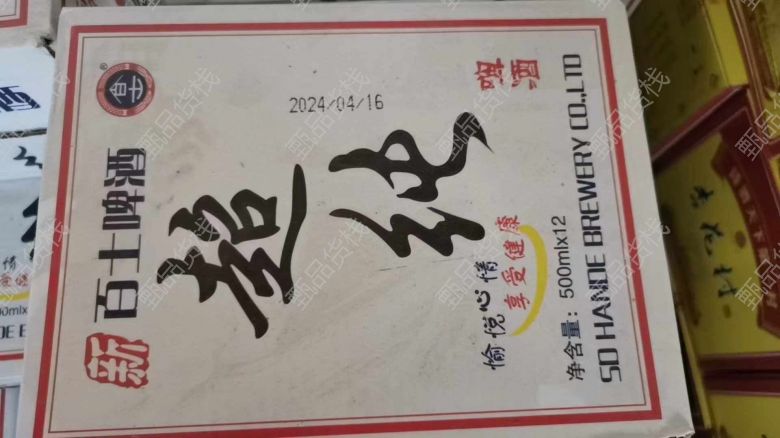 新百士啤酒
超纯
啤酒
2024/04/16
愉悦心情
享受健康
净含量：500mlx12
SD HANDE BREWERY CO.,LTD
甄品货栈